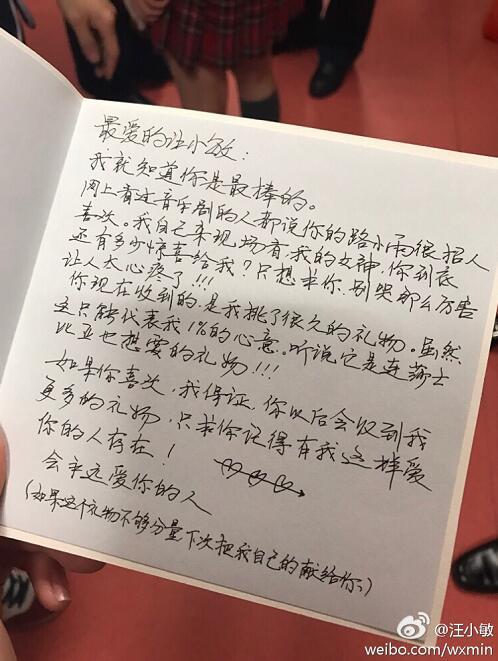 最爱的汪小敏：
我就知道你是最棒的。
网上看过音乐剧的人都说你的路小雨很招人
喜欢。我自己来现场看，我的女神，你到底
还有多少惊喜给我？只想求你，别哭那么厉害
让人太心疼了!!!
你现在收到的，是我挑了很久的礼物。虽然
这只能代表我1%的心意。听说它是连莎士
比亚也想要的礼物!!!
如果你喜欢，我保证，你以后会收到我
更多的礼物，只求你记得有我这样爱
你的人存在！
会永远爱你的人
（如果这个礼物不够分量下次把我自己的献给你。）
@汪小敏
weibo.com/wxmin